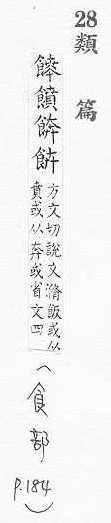 28類篇
饙餴
方文切說文滫飯或从
賁或从奔或省文四
(食部 P.184)